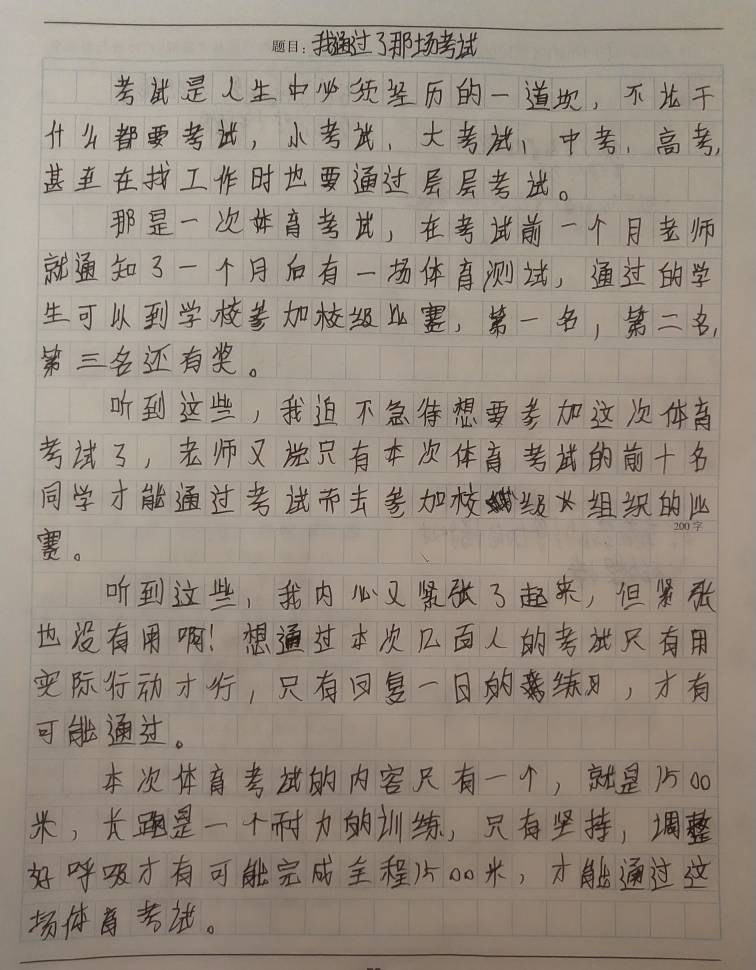 题目：我通过了那场考试
考试是人生中必须经历的一道坎，不论干
什么都要考试，小考试、大考试、中考、高考，
甚至在找工作时也要通过层层考试。
那是一次体育考试，在考试前一个月老师
就通知了一个月后有一场体育测试，通过的学
生可以到学校参加校级比赛，第一名，第二名，
第三名还有奖。
听到这些，我迫不急待想要参加这次体育
考试了，老师又说只有本次体育考试的前十名
同学才能通过考试而去参加校级组织的比
200字
赛。
听到这些，我内心又紧张了起来，但紧张
也没有用啊！想通过本次几百人的考试只有用
实际行动才行，只有日复一日的练习，才有
可能通过。
本次体育考试的内容只有一个，就是1500
米，长跑是一个耐力的训练，只有坚持，调整
好呼吸才有可能完成全程1500米，才能通过这
场体育考试。